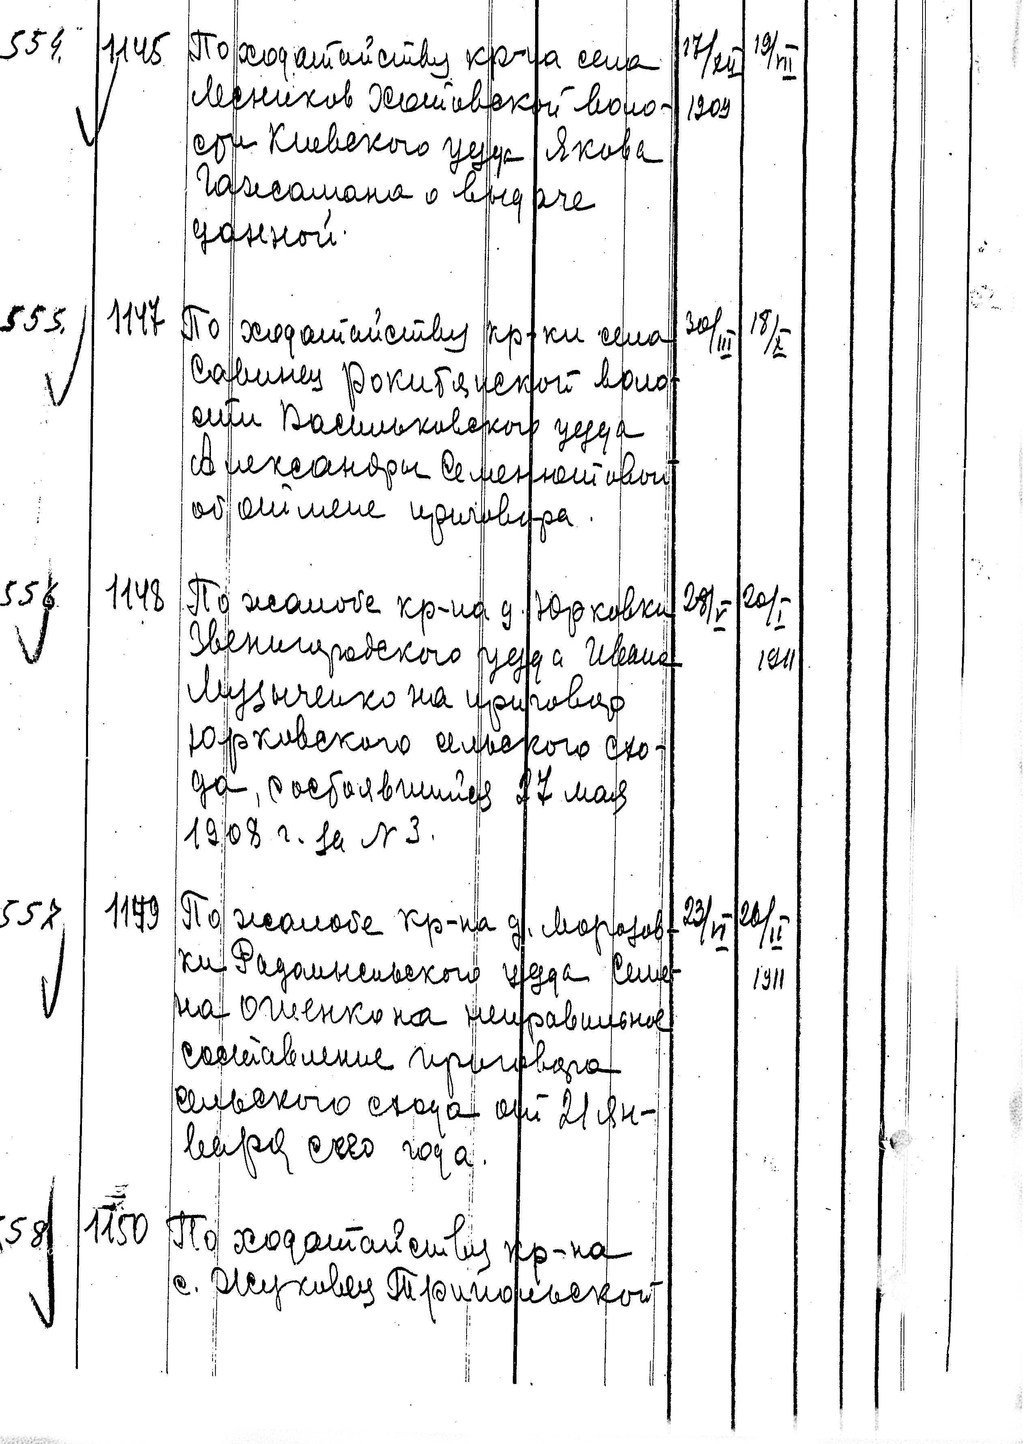 554. 1145 По ходатайству кр-на села 17/XII 19/VII
Лесников Хотовской воло- 1909
сти Киевского уезда Якова
о выдаче
данной.
555. 1147 По ходатайству кр-ки села 30/III 18/X
Савинец Рокитянской воло-
сти Васильковского уезда
Александры Семенютовой
об отмене приговора.
556 1148 По жалобе кр-на д. Юрковки 28/V 20/I
Звенигородского уезда Ивана 1911
Музыченко на приговор
Юрковского сельского схо-
да, состоявшийся 27 мая
1908 г. за № 3.
557 1149 По жалобе кр-на д. Морозов- 23/VI 20/II
ки Радомысльского уезда Семе- 1911
на Ошенко на неправильное
составление приговора
сельского схода от 21 ян-
варя сего года.
558 1150 По ходатайству кр-на
с. Жуковец Трипольской